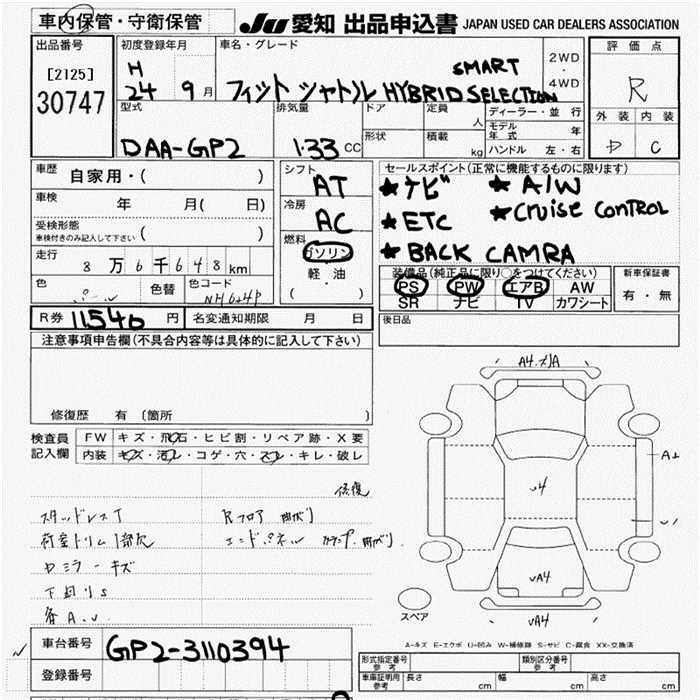 車内保管・守衛保管
JU 愛知 出品申込書 JAPAN USED CAR DEALERS ASSOCIATION
出品番号
[2125]
30747
初度登録年月
H
24 9月
車名・グレード
SMART
フィット シャトル HYBRID SELECTION
2WD
・
4WD
評価点
R
外装 内装
D C
型式
DAA-GP2
排気量
1.33 CC
ドア
形状
定員
人
積載
kg
ディーラー・並行
モデル年式 年
ハンドル 左・右
車歴
自家用・( )
車検 年 月( 日)
受検形態
車検付きのみ記入して下さい ( )
走行
8万6千648km
色
パール
色替
色コード
NH624P
シフト
AT
冷房
AC
燃料
ガソリン
・
軽油
( ・ )
セールスポイント(正常に機能するものに限ります)
★ナビ ★A/W
★ETC ★CRUISE CONTROL
★BACK CAMRA
装備品(純正品に限り○をつけてください)
PS PW エアB AW
SR ナビ TV カワシート
新車保証書
有・無
R券 11540円
名変通知期限 月 日
後日品
注意事項申告欄(不具合内容等は具体的に記入して下さい)
修復歴 有 〔箇所 〕
検査員
記入欄
FW キズ・飛石・ヒビ割・リペア跡・X要
内装 キズ・汚レ・コゲ・穴・スレ・キレ・破レ
修復
スタッドレスT
荷室トリム1部欠
Rフロア 曲がり
エンドパネル
曲がり
ミラーキズ
下廻りS
各A.U
A4.
A
U4
UA4
UA4
スペア
A-キズ E-エクボ U-凹み W-補修跡 S-サビ C-腐食 XX-交換済
車台番号 GP2-3110394
登録番号
形式指定番号
参考
類別区分番号
参考
車庫証明用
参考
長さ cm 幅 cm 高さ cm